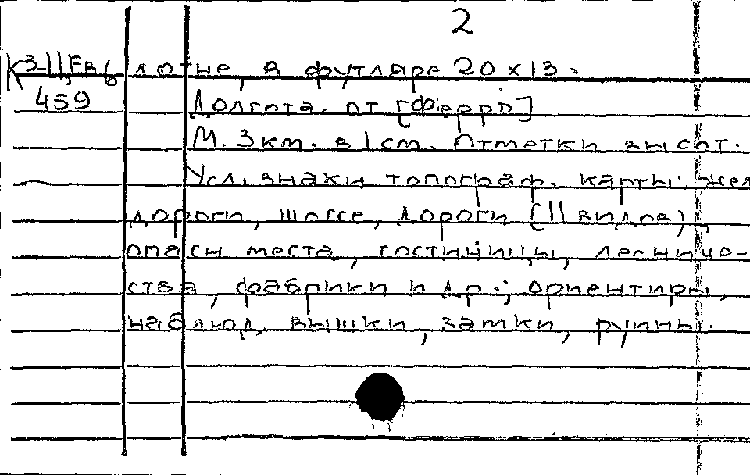 2
К3-II,Ев6 лотне, в футляре 20 х 13.
459 Долгота от [Ферро]
М. 3 км. в 1 см. Отметки высот.
Усл. знаки топограф. карты: жел
дороги, шоссе, дороги (II видов),
опасн места, гостиницы, лесниче-
ства, фабрики и др.; ориентиры,
наблюд. вышки, замки, руины.